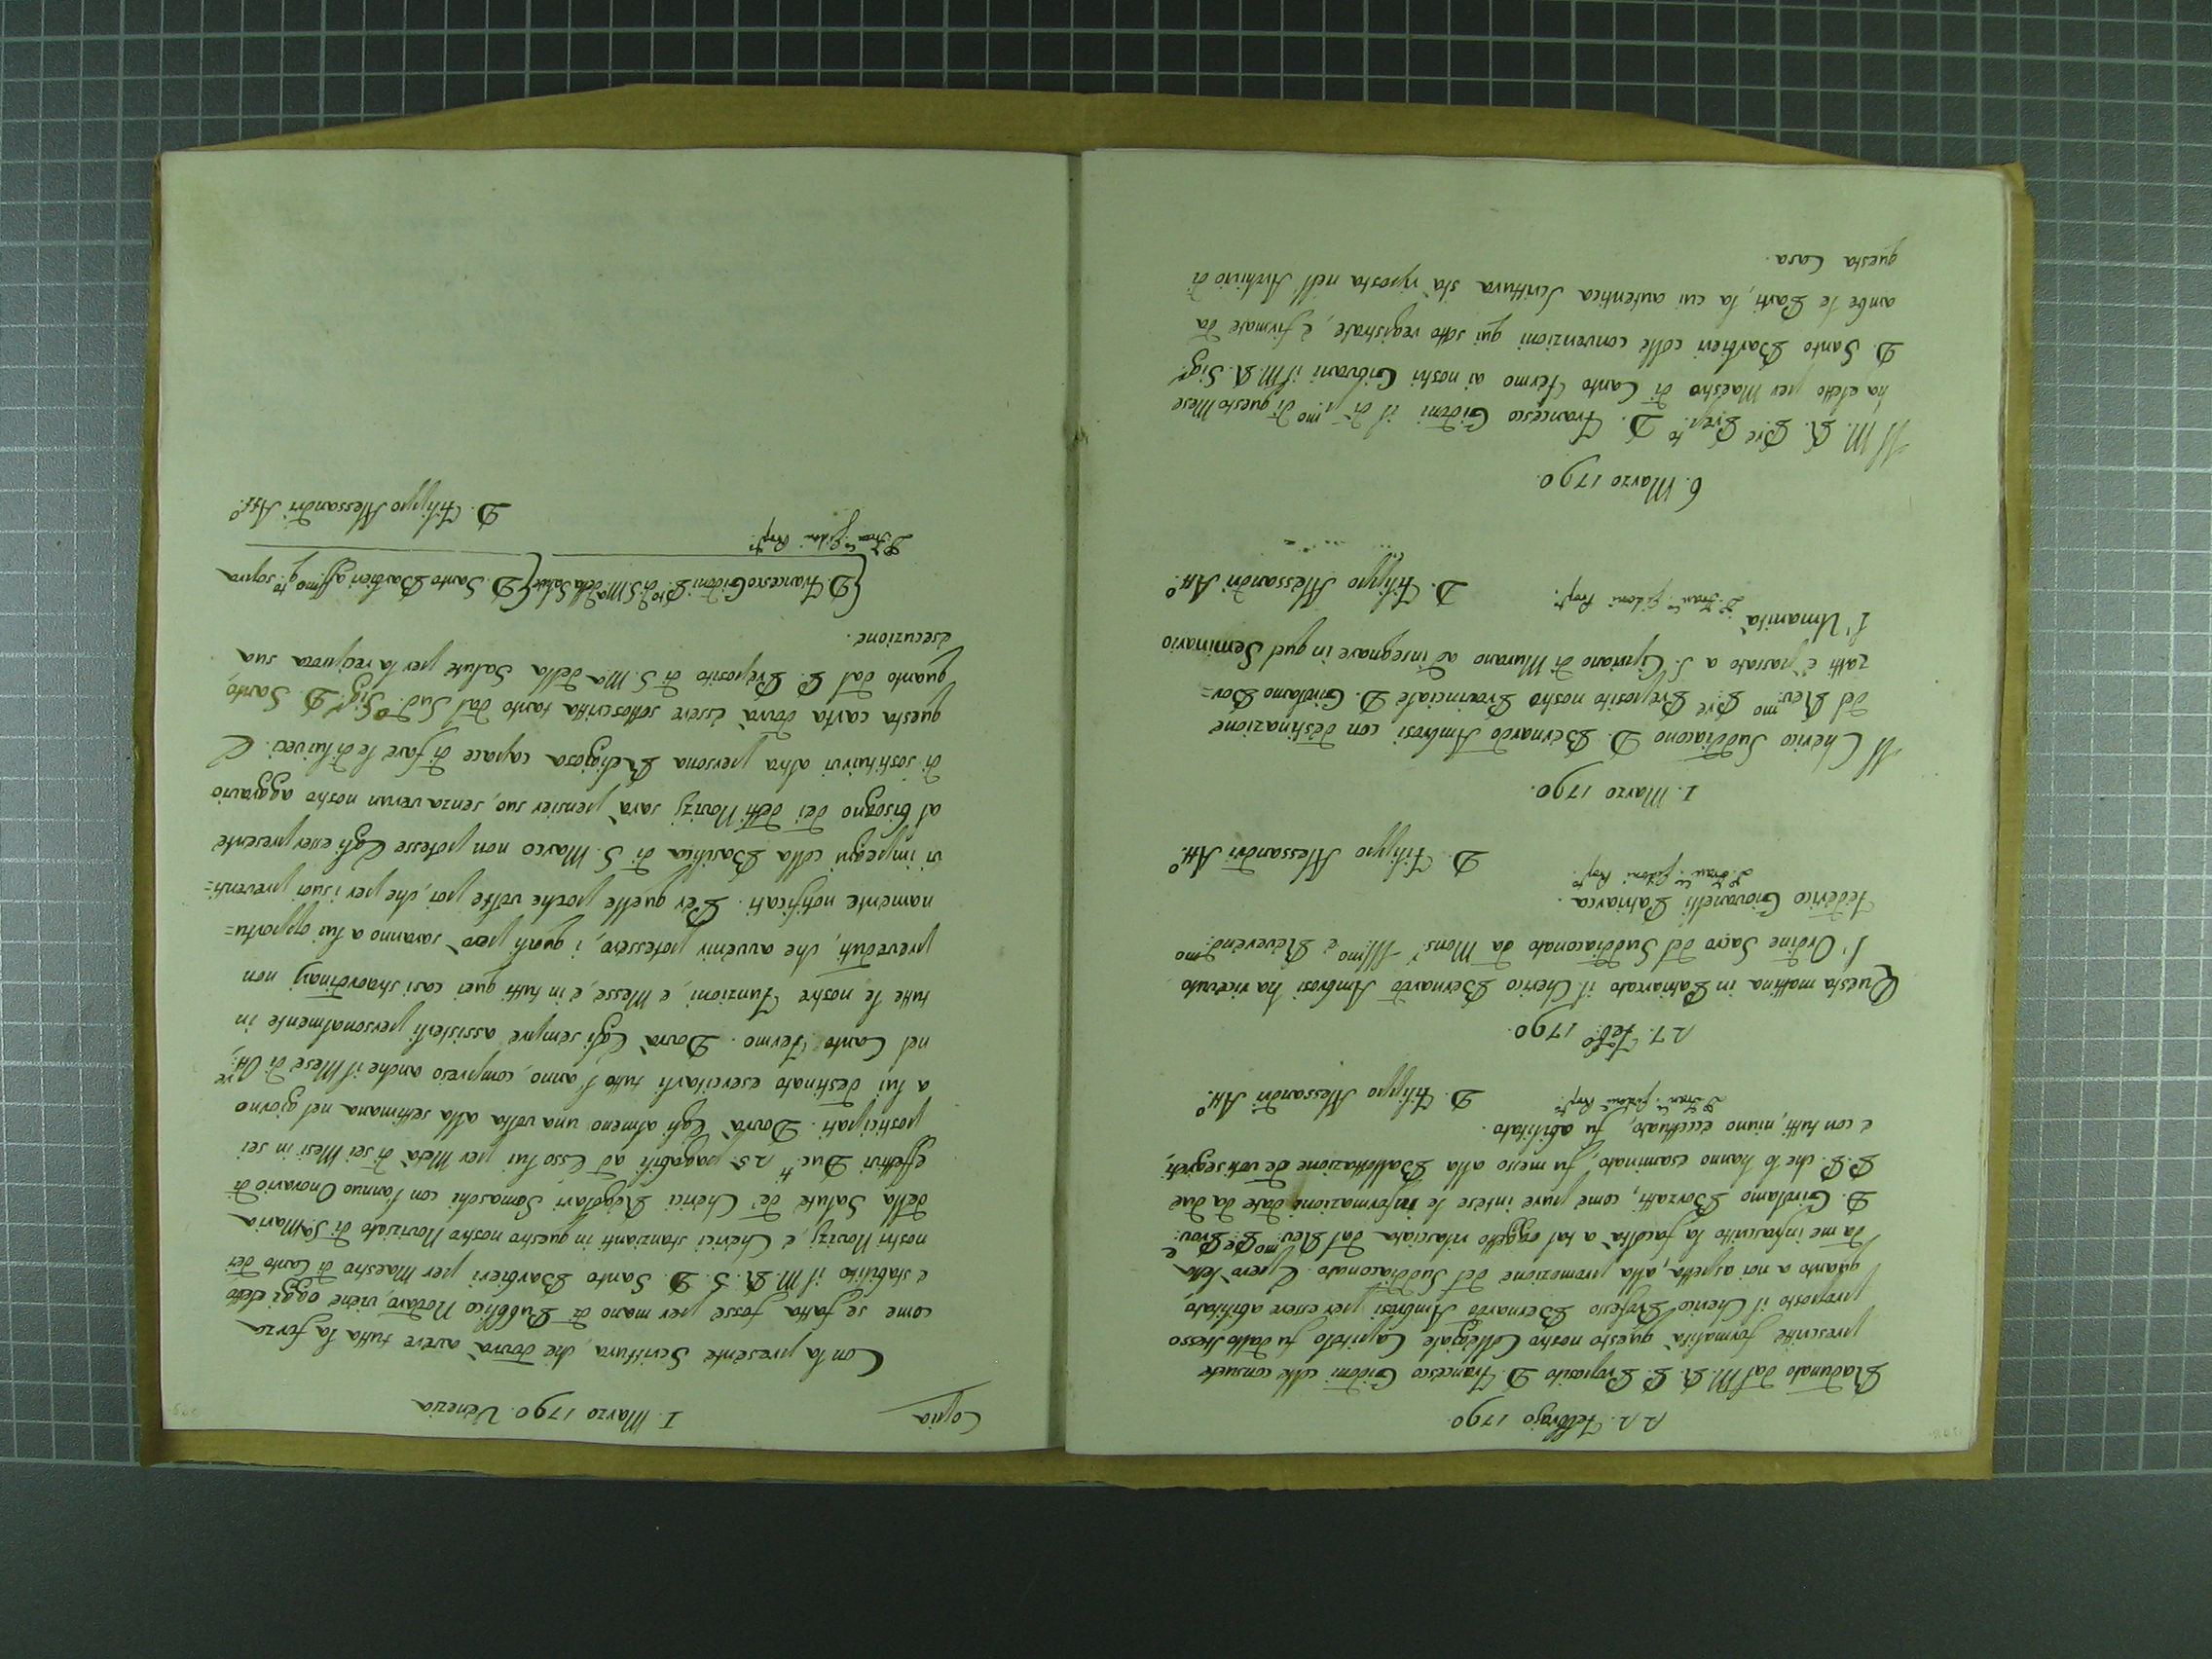 22. Febbrajo 1790.
Radunato dal M. R. P. Preposito D. Francesco Gidoni colle consuete
prescritte formalità questo nostro Collegiale Capitolo fu dallo stesso
proposto il Chierico Professo Bernardo Ambrosi per essere abilitato,
quanto a noi aspetta, alla promozione del Suddiaconato. E però letta
da me infrascritto la facoltà a tal oggetto rilasciata dal Rev:mo Pre Prov:le
D. Girolamo Borzatti, come pure intese le informazioni date da due
P.P. che lo hanno esaminato, fu messo alla Ballottazione de voti segreti,
e con tutti, niuno eccettuato, fu abilitato.
D. Fran:co Gidoni Prep:to
D. Filippo Alessandri Att:o
27. Feb:o 1790.
Questa mattina in Patriarcato il Chierico Bernardo Ambrosi ha ricevuto
l'Ordine Sacro del Suddiaconato da Mons:r Ill:mo e Reverend:mo
Federico Giovanelli Patriarca.
D. Fran:co Gidoni Prep:to
D. Filippo Alessandri Att:o
1. Marzo 1790.
Il Chierico Suddiacono D. Bernardo Ambrosi con destinazione
del Rev:mo Pre Preposito nostro Provinciale D. Girolamo Bor=
zatti è passato a S. Cipriano di Murano ad insegnare in quel Seminario
l'Umanità
D. Fran:co Gidoni Prep:to
D. Filippo Alessandri Att:o
6. Marzo 1790.
Il M. R. Pre Prep:to D. Francesco Gidoni il dì p:mo di questo Mese
ha eletto per Maestro di Canto Fermo ai nostri Giovani il M. R. Sig:r
D. Santo Barbieri colle convenzioni qui sotto registrate, e firmate da
ambe le Parti, la cui autentica Scrittura sta riposta nell' Archivio di
questa Casa.
Copia
I. Marzo 1790. Venezia
Con la presente Scrittura, che dovrà avere tutta la forza
come se fatta fosse per mano di Pubblico Nodaro, viene oggi eletto
e stabilito il M. R. S. D. Santo Barbieri per Maestro di Canto dei
nostri Novizj, e Chierici stanzianti in questro nostro Noviziato di S. Maria
della Salute de' Chierici Regolari Somaschi con l'annuo Onorario di
effettivi Duc:ti 25. pagabili ad Esso lui per Metà di sei Mesi in sei
posticipati. Dovrà Egli almeno una volta alla settimana nel giorno
a lui destinato esercitarli tutto l'anno, compreso anche il Mese di Ott:re,
nel Canto Fermo. Dovrà Egli sempre assisterli personalmente in
tutte le nostre Funzioni, e Messe, e in tutti quei casi straordinarj non
preveduti, che avvenir potessero, i quali però saranno a lui opportu=
namente notificati. Per quelle poche volte poi, che per i suoi preventi=
vi impegni colla Basilica di S. Marco non potesse Egli esser presente
al bisogno dei detti Novizj sarà pensier suo, senza verun nostro aggravio
di sostituirvi altra persona Religiosa capace di fare le di lui veci. E
questa carta dovrà essere sottoscritta tanto dal Sud:o Sig:r D. Santo,
quanto dal P. Preposito di S. M:a della Salute per la reciproca sua
esecuzione.
D. Francesco Gidoni P:to di S. M:a della Salute D. Santo Barbieri aff:mo q:to sopra
D. Fran:co Gidoni Prep:to
D. Filippo Alessandri Att:o